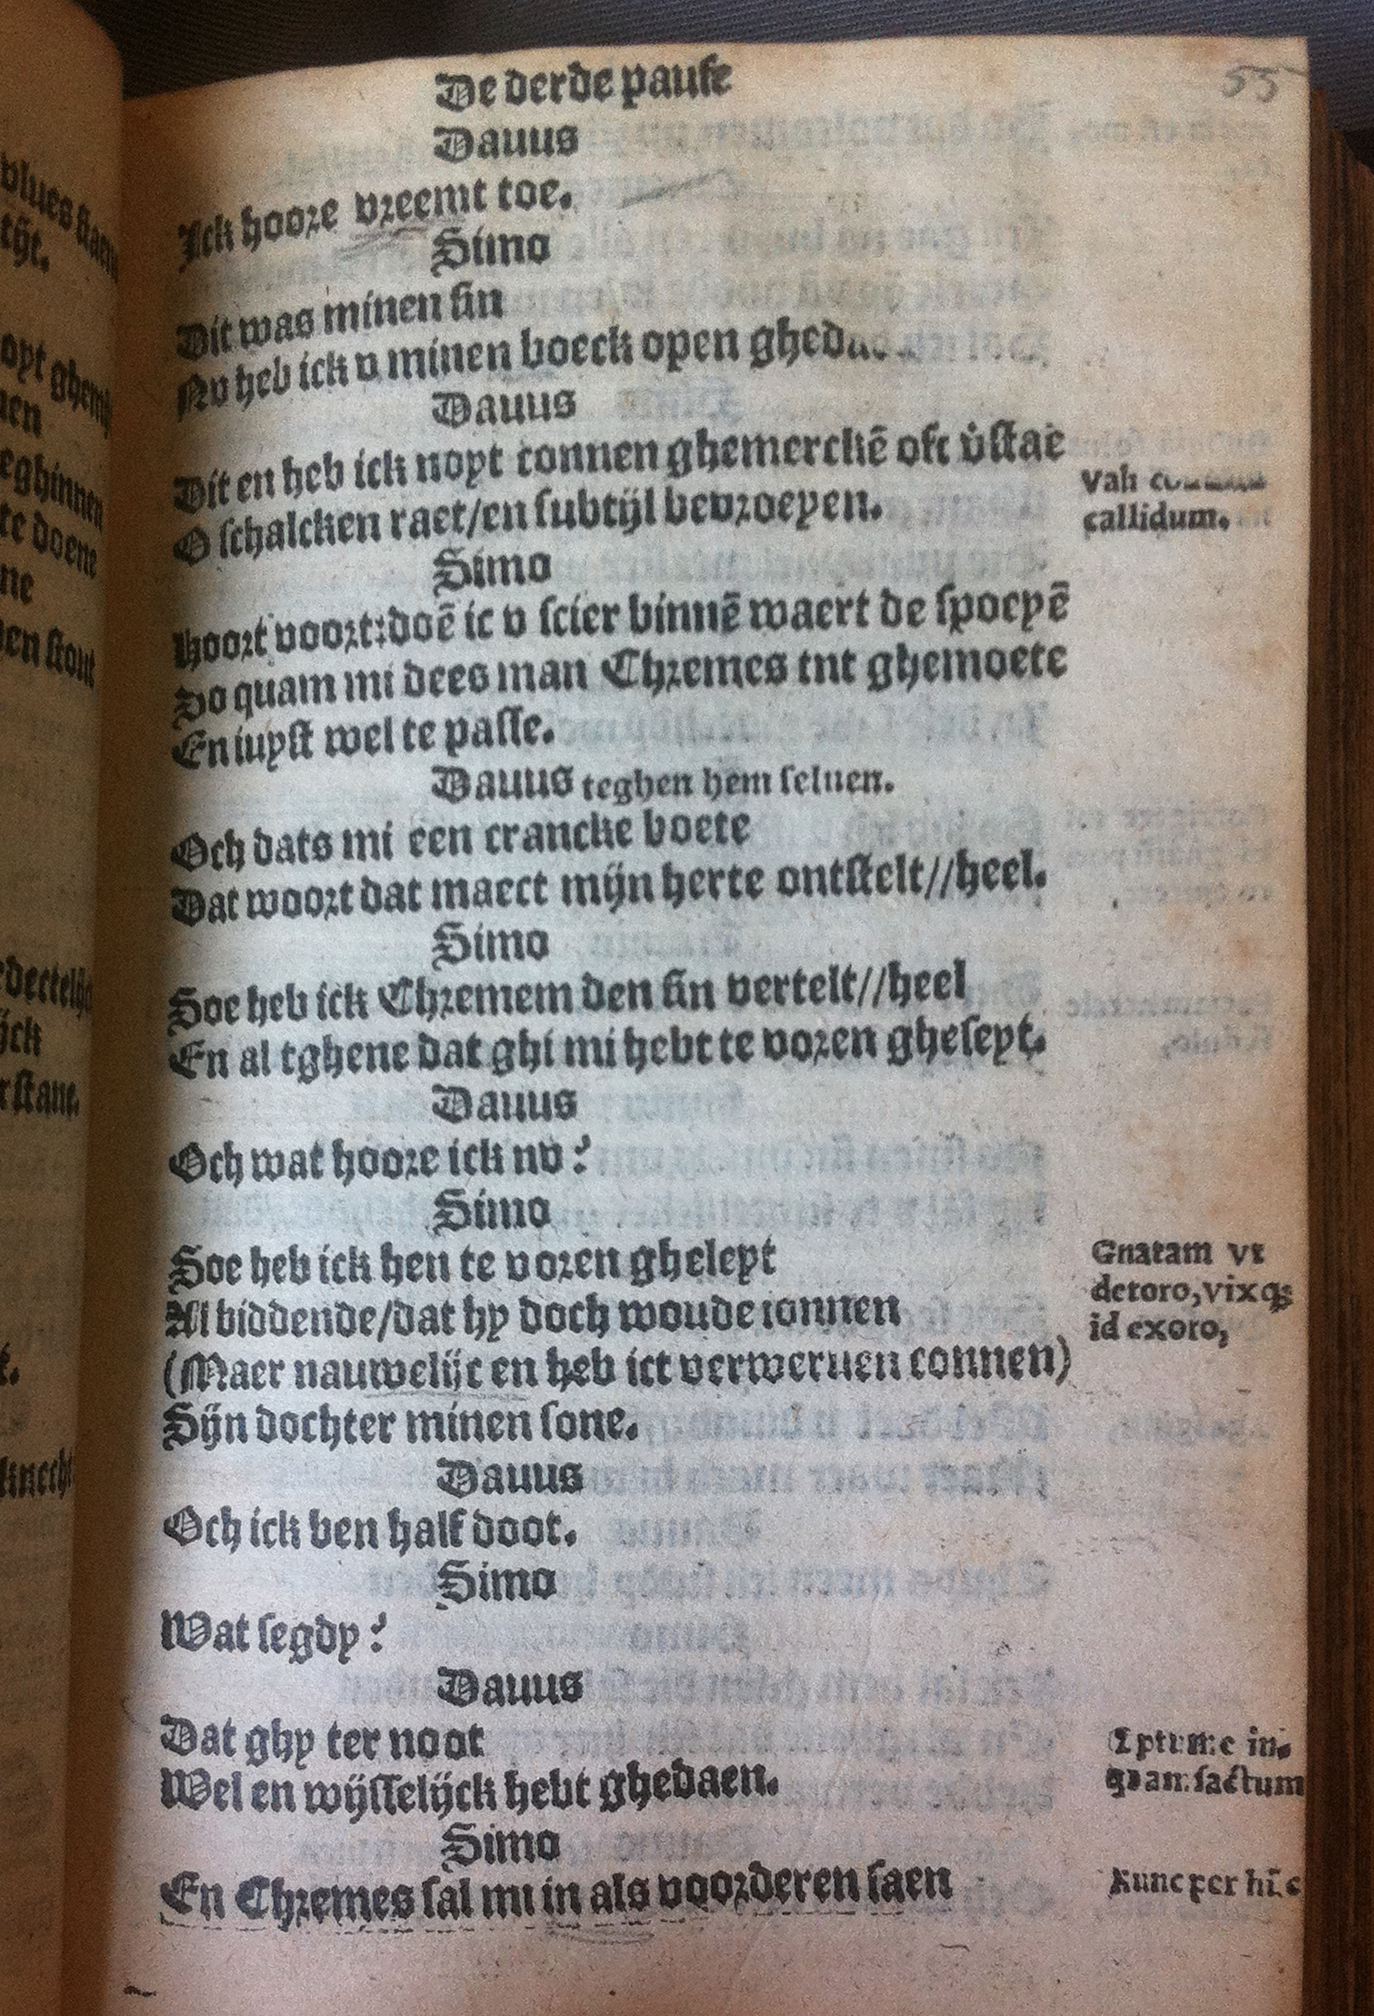 55
De derde pause
Dauus
Ick hoore vreemt toe.
Simo
Dit was minen sin
Nv heb ick v minen boeck open
Dauus
Dit en heb ick noyt connen ghemerckē oft v̊stae
Vah
O schalcken raet/en subtijl bevroeyen.
callidum.
Simo
Hoort voort: doē ic v scier binnē waert de spoeyē
Do quam mi dees man Chremes int ghemoete
En iuyst wel te passe.
Dauus teghen hem seluen.
Och dats mi een crancke boete
Dat woort dat maect mijn herte ontstelt//heel.
Simo
Soe heb ick Chremem den sin vertelt//heel
En al tghene dat ghi mi hebt te voren gheseyt.
Dauus
Och wat hoore ick nv?
Simo
Soe heb ick hen te voren gheleyt
Gnatam vt
Al biddende/dat hy doch woude ionnen
detoro, vixq;
id exoro,
(Maer nauwelijc en heb ict verweruen connen)
Sijn dochter minen sone.
Dauus
Och ick ben half doot.
Simo
Wat segdy?
Dauus
Dat ghy ter noot
Optume in.
Wel en wijsselijck hebt ghedaen.
quam factum
Simo
En Chremes sal mi in als voorderen saen
Nunc per hūc